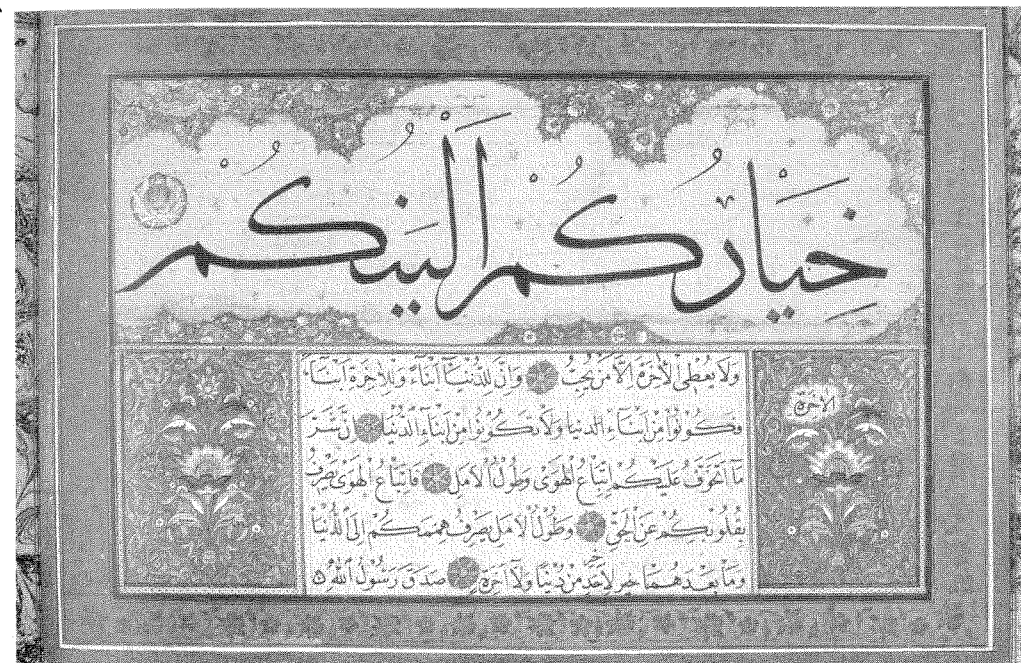 خِيَارُكُمْ أَلْيَنُكُمْ
وَلَا يُعْطِي الْآخِرَةَ إِلَّا مَنْ يُحِبُّ وَإِنَّ لِلدُّنْيَا أَبْنَاءً وَلِلْآخِرَةِ أَبْنَاءً
فَكُونُوا مِنْ أَبْنَاءِ الدنيا وَلَا تَكُونُوا مِنْ أَبْنَاءِ الدُّنْيَا إِنَّ شَرَّ
مَا أَتَخَوَّفُ عَلَيْكُمْ اِتِّبَاعُ الْهَوَى وَطُولُ الْأَمَلِ فَاتِّبَاعُ الْهَوَى يَصْرِفُ
بِقُلُوبِكُمْ عَنِ الْحَقِّ وَطُولُ الْأَمَلِ يَصْرِفُ هِمَمَكُمْ إِلَى الدُّنْيَا
وَمَا بَعْدَهُمَا خير لِأَحَدٍ مِنْ دُنْيَا وَلَا آخِرَةٍ صَدَقَ رَسُولُ اللهِ
الآخرة